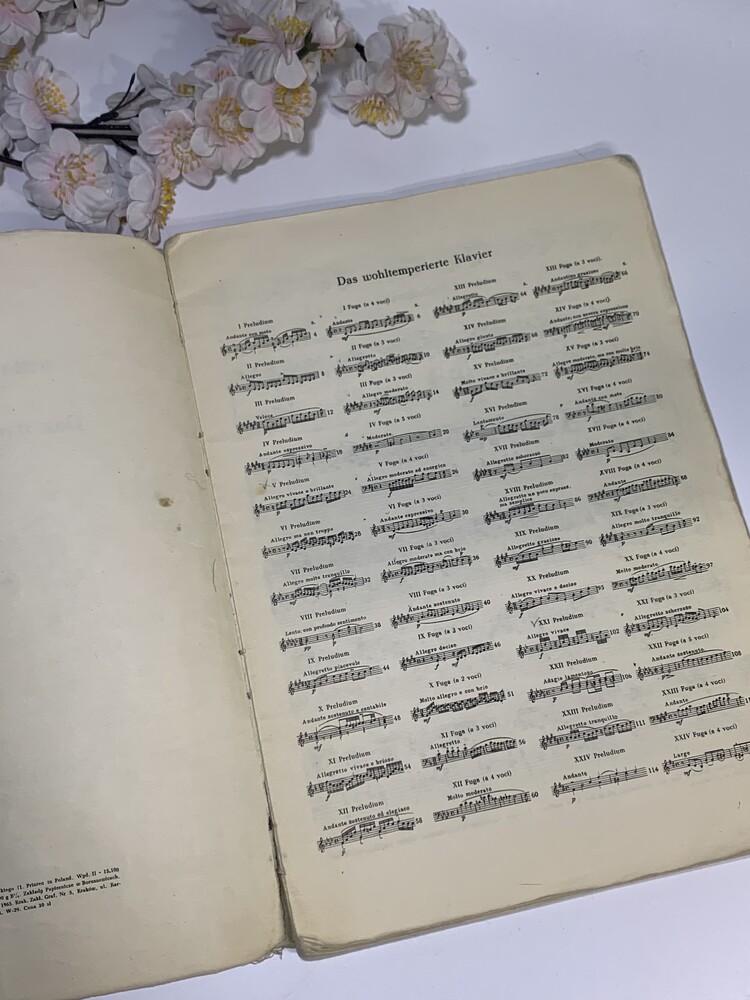 Das wohltemperierte Klavier
I Preludium
Andante con moto
4
I Fuga (a 4 voci)
Andante
6
II Preludium
Allegro
8
II Fuga (a 3 voci)
Allegretto
10
III Preludium
Veloce
12
III Fuga (a 3 voci)
Allegro moderato
14
IV Preludium
Andante espressivo
18
IV Fuga (a 5 voci)
Moderato
20
V Preludium
Allegro vivace e brillante
24
V Fuga (a 4 voci)
Allegro moderato ed energico
26
VI Preludium
Allegro ma non troppo
28
VI Fuga (a 3 voci)
Andante espressivo
30
VII Preludium
Allegro molto tranquillo
32
VII Fuga (a 3 voci)
Allegro moderato ma con brio
36
VIII Preludium
Lento, con profondo sentimento
38
VIII Fuga (a 3 voci)
Andante sostenuto
40
IX Preludium
Allegretto piacevole
44
IX Fuga (a 3 voci)
Allegro deciso
46
X Preludium
Andante sostenuto e cantabile
48
X Fuga (a 2 voci)
Molto allegro e con brio
51
XI Preludium
Allegretto vivace e brioso
54
XI Fuga (a 3 voci)
Allegretto
56
XII Preludium
Andante sostenuto ed elegiaco
58
XII Fuga (a 4 voci)
Molto moderato
60
XIII Preludium
Allegretto
64
XIII Fuga (a 3 voci).
Andantino grazioso
66
XIV Preludium
Allegro giusto
68
XIV Fuga (a 4 voci)
Andante, con mesta espressione
70
XV Preludium
Molto vivace e brillante
72
XV Fuga (a 3 voci)
Allegro moderato, ma con molto brio
74
XVI Preludium
Lentamente
78
XVI Fuga (a 4 voci)
Andante con moto
80
XVII Preludium
Allegretto scherzoso
82
XVII Fuga (a 4 voci)
Moderato
84
XVIII Preludium
Allegretto un poco sopras.
ma semplice
86
XVIII Fuga (a 4 voci)
Andante
88
XIX Preludium
Allegretto grazioso
90
XIX Fuga (a 3 voci)
Allegro molto tranquillo
92
XX Preludium
Allegro vivace e deciso
95
XX Fuga (a 4 voci)
Molto moderato
97
XXI Preludium
Allegro vivace
102
XXI Fuga (a 3 voci)
Allegretto scherzoso
104
XXII Preludium
Adagio lamentoso
106
XXII Fuga (a 5 voci)
Andante sostenuto
108
XXIII Preludium
Allegretto tranquillo
111
XXIII Fuga (a 4 voci)
Andante
XXIV Preludium
Andante
114
XXIV Fuga (a 4 voci)
Largo
Printed in Poland. Wpd. II - 15,100
Zakłady Papiernicze w Boruszowicach.
1965. Krak. Zakł. Graf. Nr 5, Kraków, ul.
W-29. Cena 30 zł